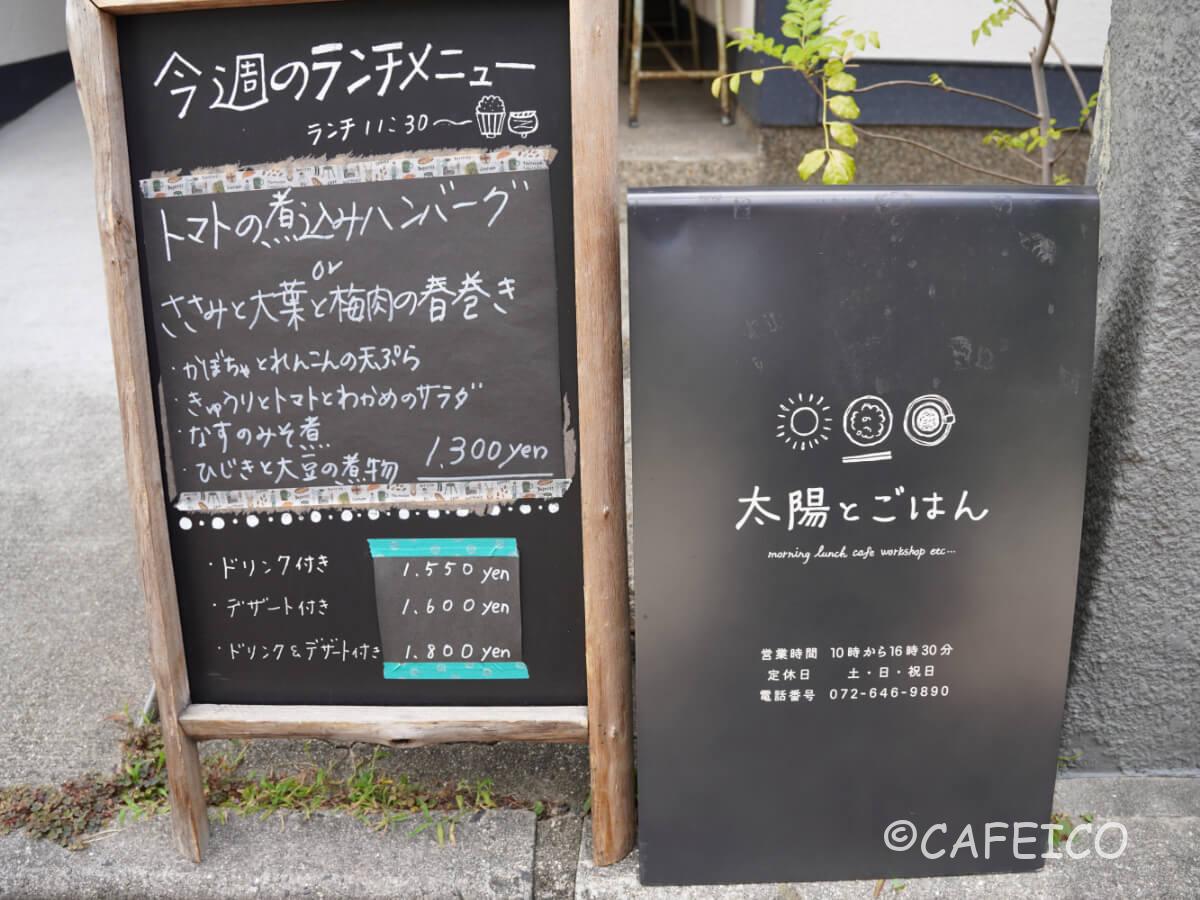 今週のランチメニュー
ランチ 11:30〜
トマトの煮込みハンバーグ
or
ささみと大葉と梅肉の春巻き
・かぼちゃとれんこんの天ぷら
・きゅうりとトマトとわかめのサラダ
・なすのみそ煮
・ひじきと大豆の煮物
1,300yen
・ドリンク付き 1.550yen
・デザート付き 1.600yen
・ドリンク&デザート付き 1.800yen
太陽とごはん
morning lunch cafe workshop etc…
営業時間 10時から16時30分
定休日 土・日・祝日
電話番号 072-646-9890
©CAFEICO